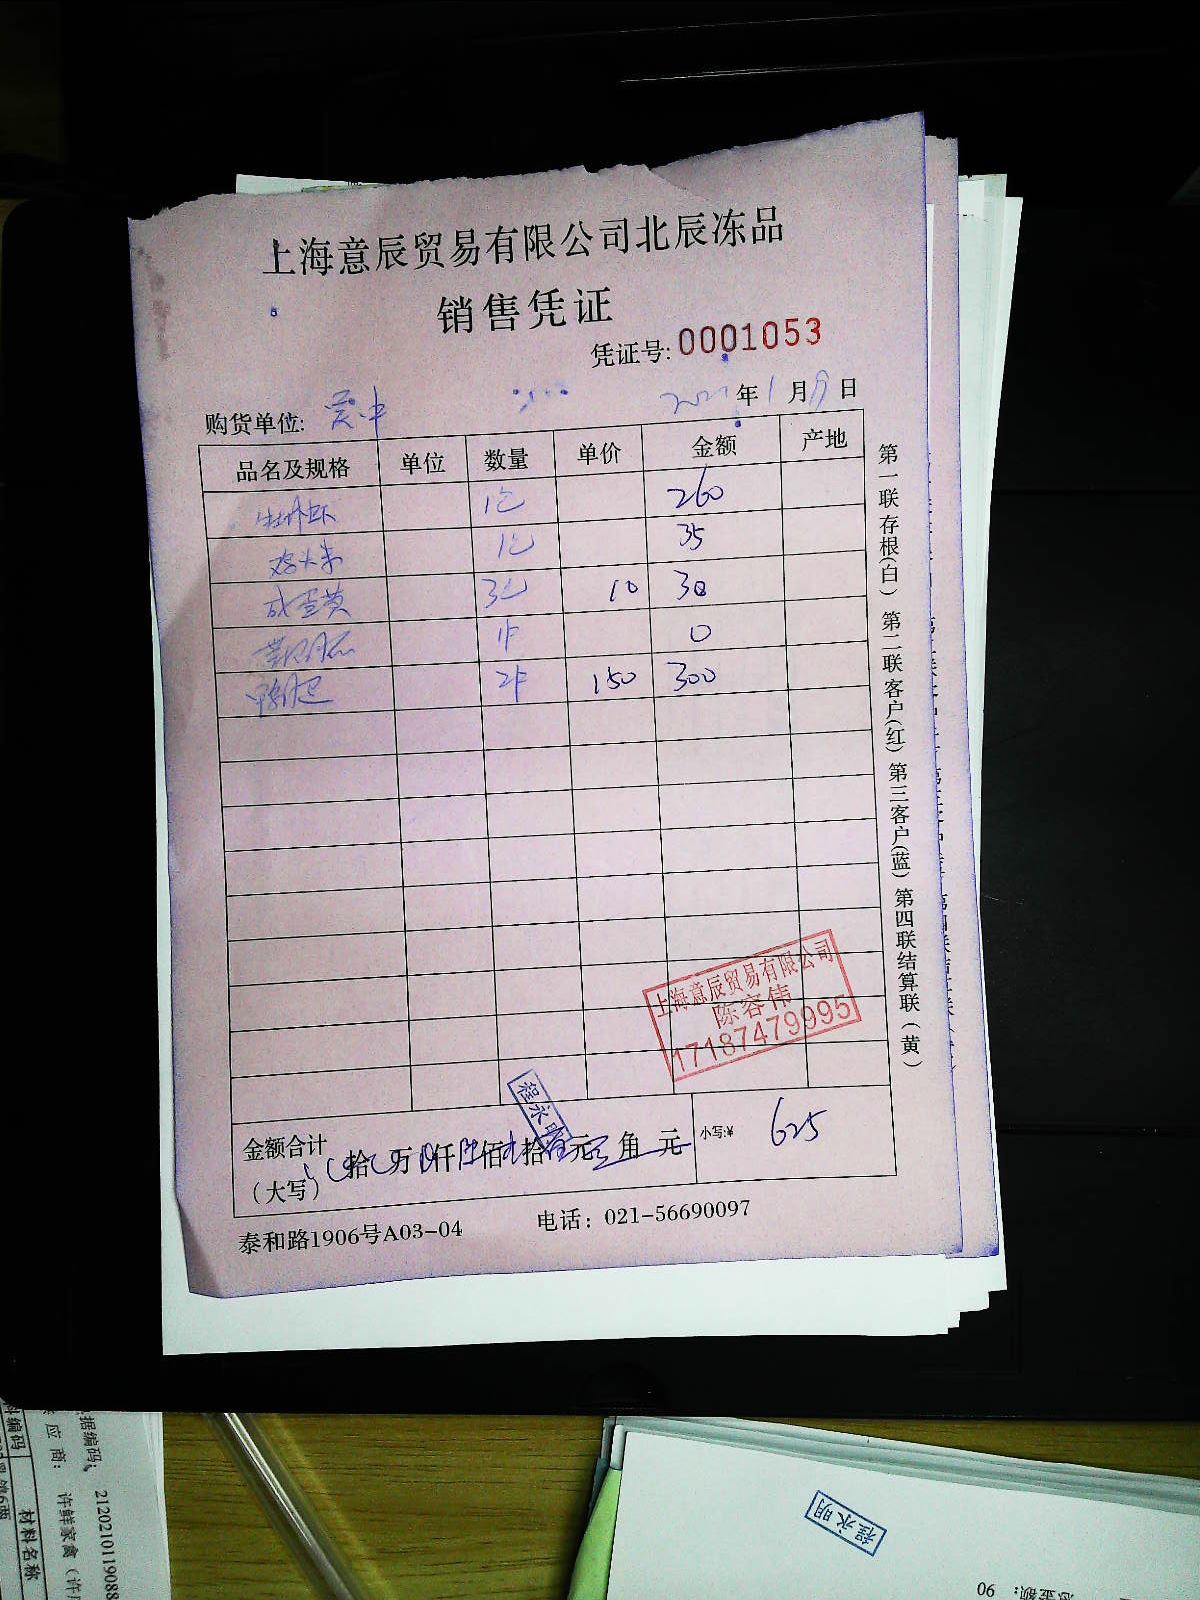 上海意辰贸易有限公司北辰冻品
销售凭证
凭证号: 0001053
购货单位: 2021年1月9日
品名及规格 单位 数量 单价 金额 产地
牡丹虾 1包 260
鸡头米 1包 35
咸蛋黄 3包 10 30
1件 0
2件 150 300
上海意辰贸易有限公司
陈容伟
17187479995
程永明
金额合计
(大写)
拾 万 仟 佰 拾 元 角 元
小写:¥ 625
泰和路1906号A03-04 电话: 021-56690097
第一联存根(白) 第二联客户(红) 第三客户(蓝) 第四联结算联(黄)
应商: 许鲜家禽
据编码: 212021011908
材料名称
程永明
总金额: 90